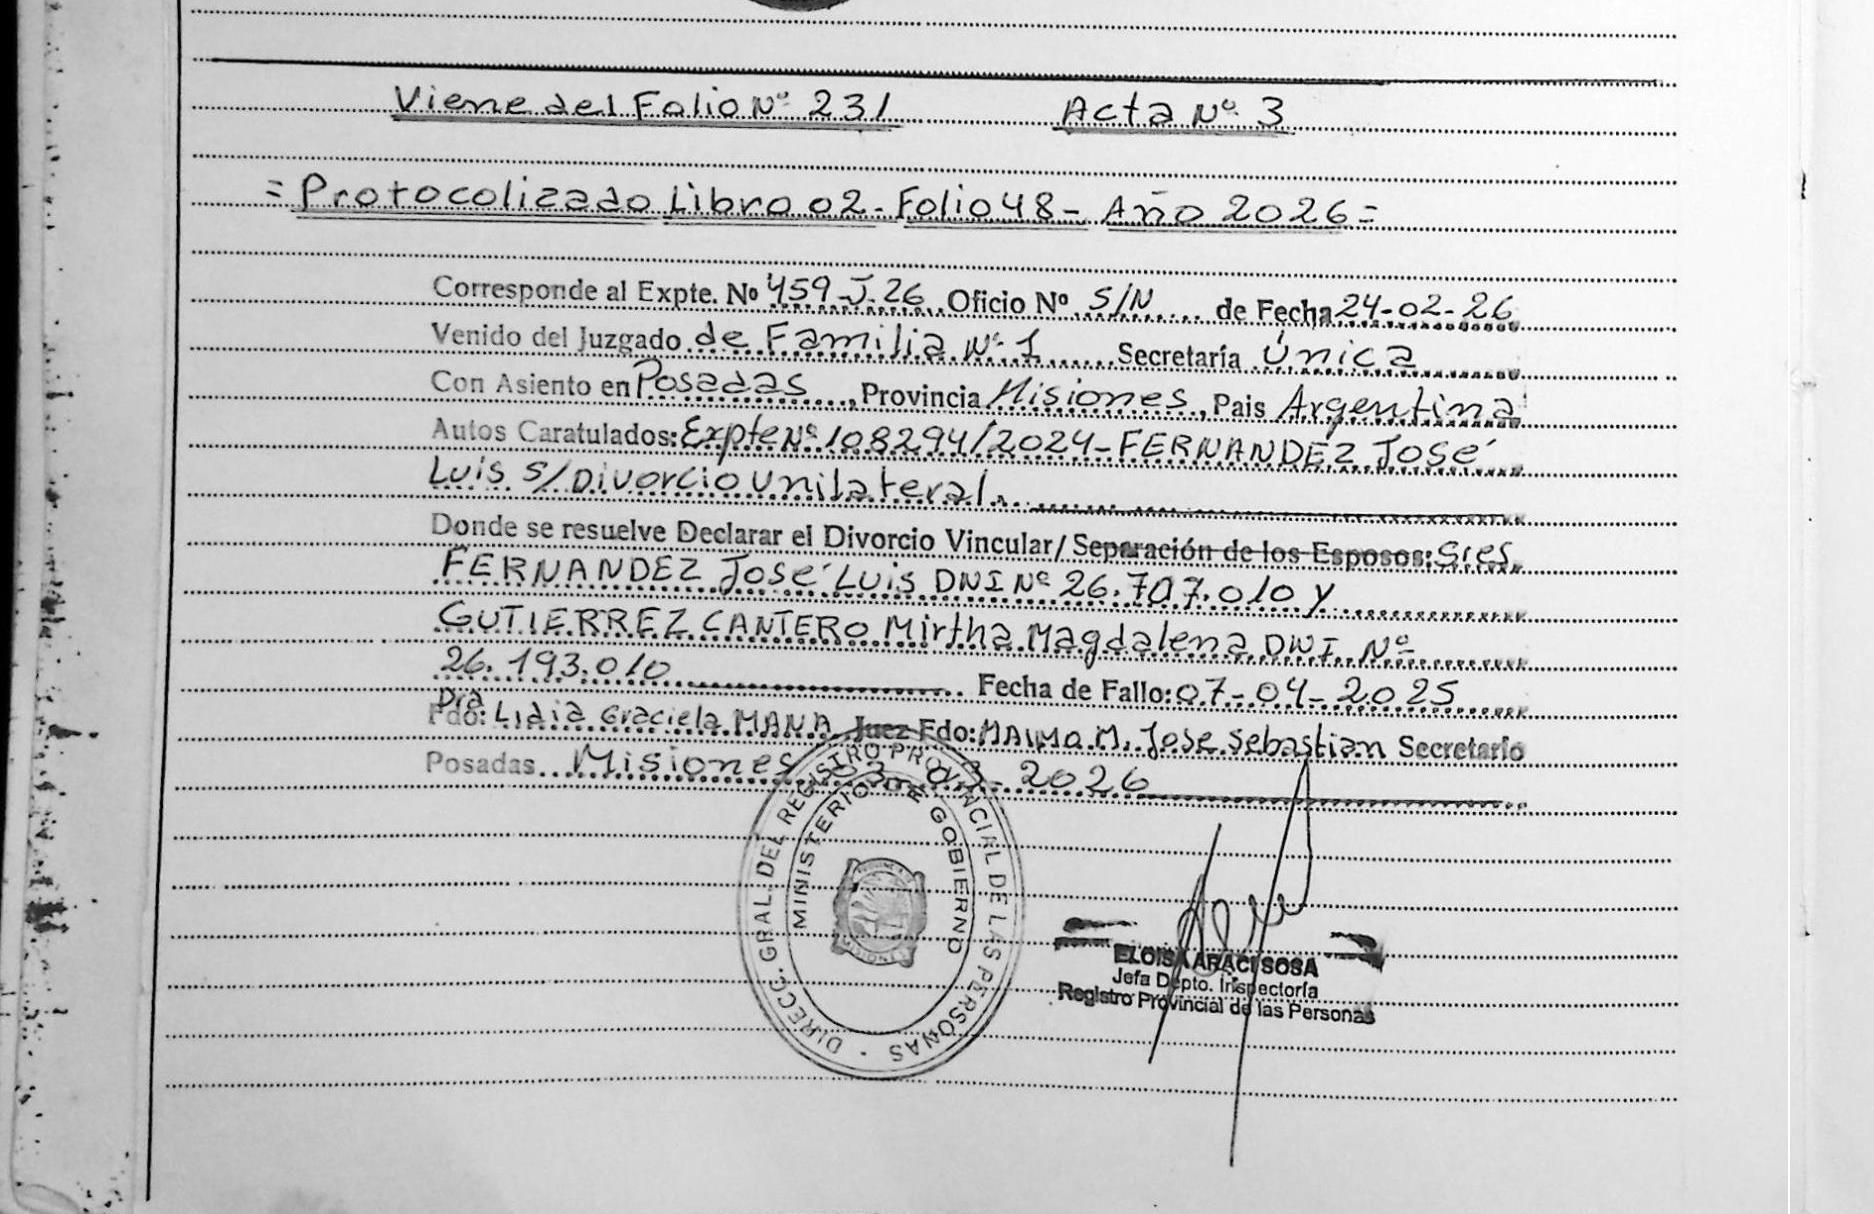 Viene del Folio Nº 231 Acta Nº 3
= Protocolizado Libro 02 - Folio 48 - Año 2026 =
Corresponde al Expte. Nº 459-J-26 Oficio Nº S/N de Fecha 24-02-26
Venido del Juzgado de Familia Nº 1 Secretaría Única
Con Asiento en Posadas, Provincia Misiones, Pais Argentina
Autos Caratulados: Expte Nº 108294/2024 - FERNANDEZ José
Luis S/Divorcio Unilateral.
Donde se resuelve Declarar el Divorcio Vincular/ Separación de los Esposos: Sres
FERNANDEZ José Luis DNI Nº 26.707.010 y
GUTIERREZ CANTERO Mirtha Magdalena DNI Nº
26.193.010 Fecha de Fallo: 07-04-2025
Dra
Fdo: Lidia Graciela MANA Juez Fdo: M. Jose Sebastian Secretario
Posadas Misiones 03-03-2026
DIRECC. GRAL. DEL REGISTRO PROVINCIAL DE LAS PERSONAS
MINISTERIO DE GOBIERNO
ELOISA ARACI SOSA
Jefa Depto. Inspectoría
Registro Provincial de las Personas